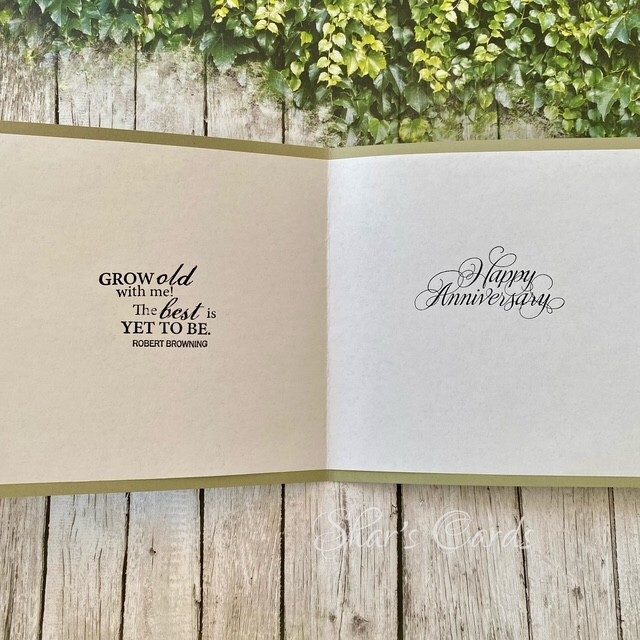 GROW old
with me!
The best is
YET TO BE.
ROBERT BROWNING
Happy
Anniversary
Shar's Cards